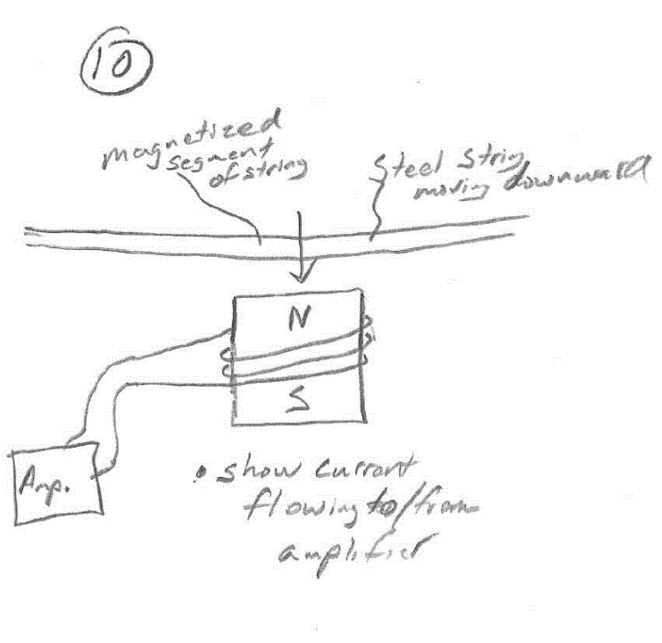 10
magnetized
segment
of string
Steel String
moving downward
N
S
Amp.
• show current
flowing to/from
amplifier